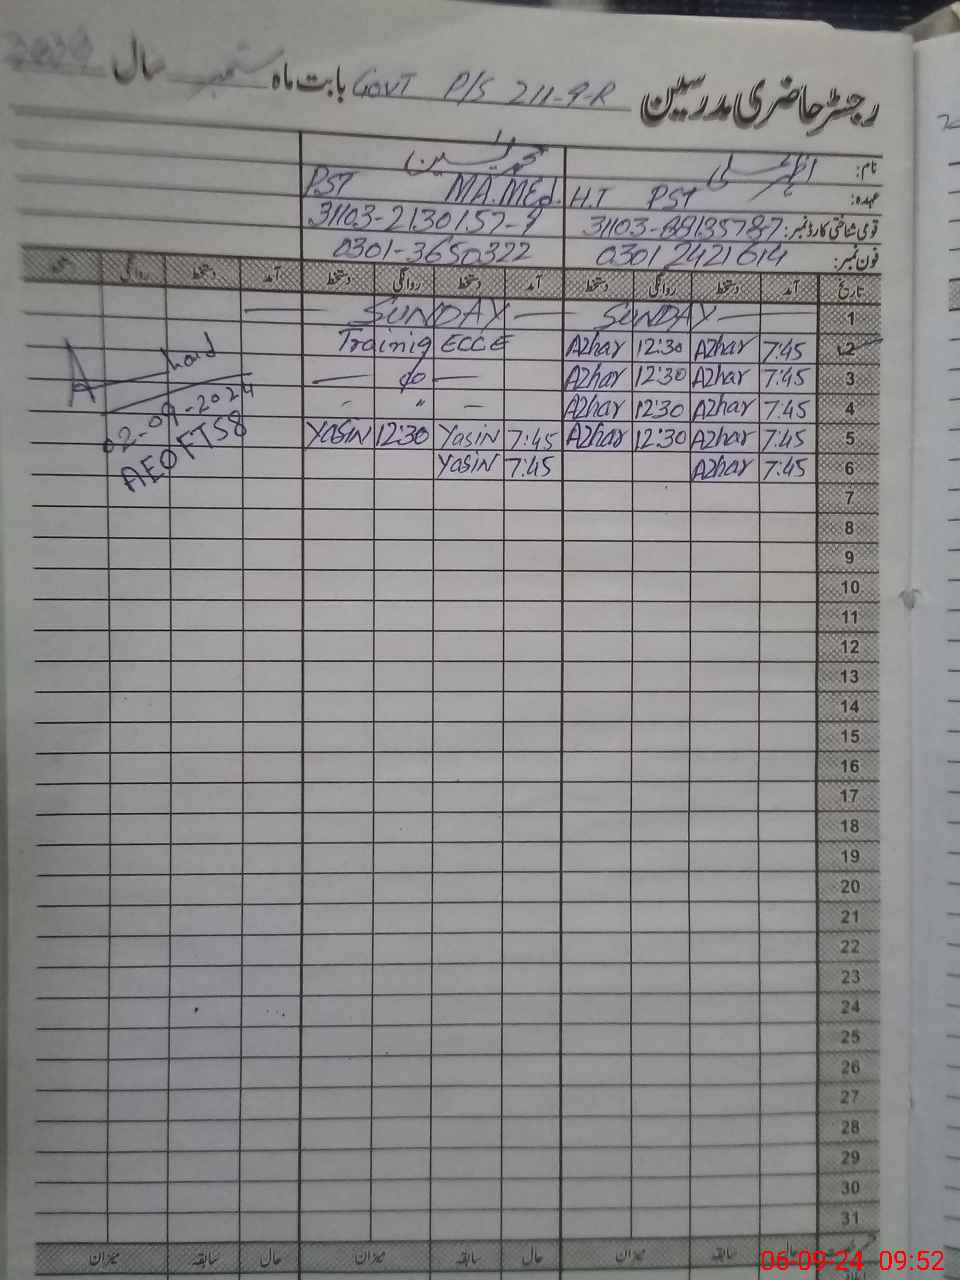 رجسٹر حاضری مدرسین GOVT P/S 211-9-R بابت ماہ ستمبر سال
نام: اظہر علی محمد یٰسین
عہدہ: H.T PST PST MA.MEd.
قومی شناختی کارڈ نمبر: 31103-8913578-7 31103-2130157-9
فون نمبر: 0301 2421614 0301-3650322
تاریخ آمد دستخط روانگی دستخط آمد دستخط روانگی دستخط آمد دستخط روانگی دستخط
1 SUNDAY SUNDAY
2 7:45 Azhar 12:30 Azhar Trainig ECCE
3 7:45 Azhar 12:30 Azhar — do —
4 7:45 Azhar 12:30 Azhar - " -
5 7:45 Azhar 12:30 Azhar 7:45 Yasin 12:30 Yasin
6 7:45 Azhar 7:45 Yasin
02-09-2024
AEO FTS8
7
8
9
10
11
12
13
14
15
16
17
18
19
20
21
22
23
24
25
26
27
28
29
30
31
حال سابقہ میزان حال سابقہ میزان حال سابقہ میزان
06-09-24 09:52